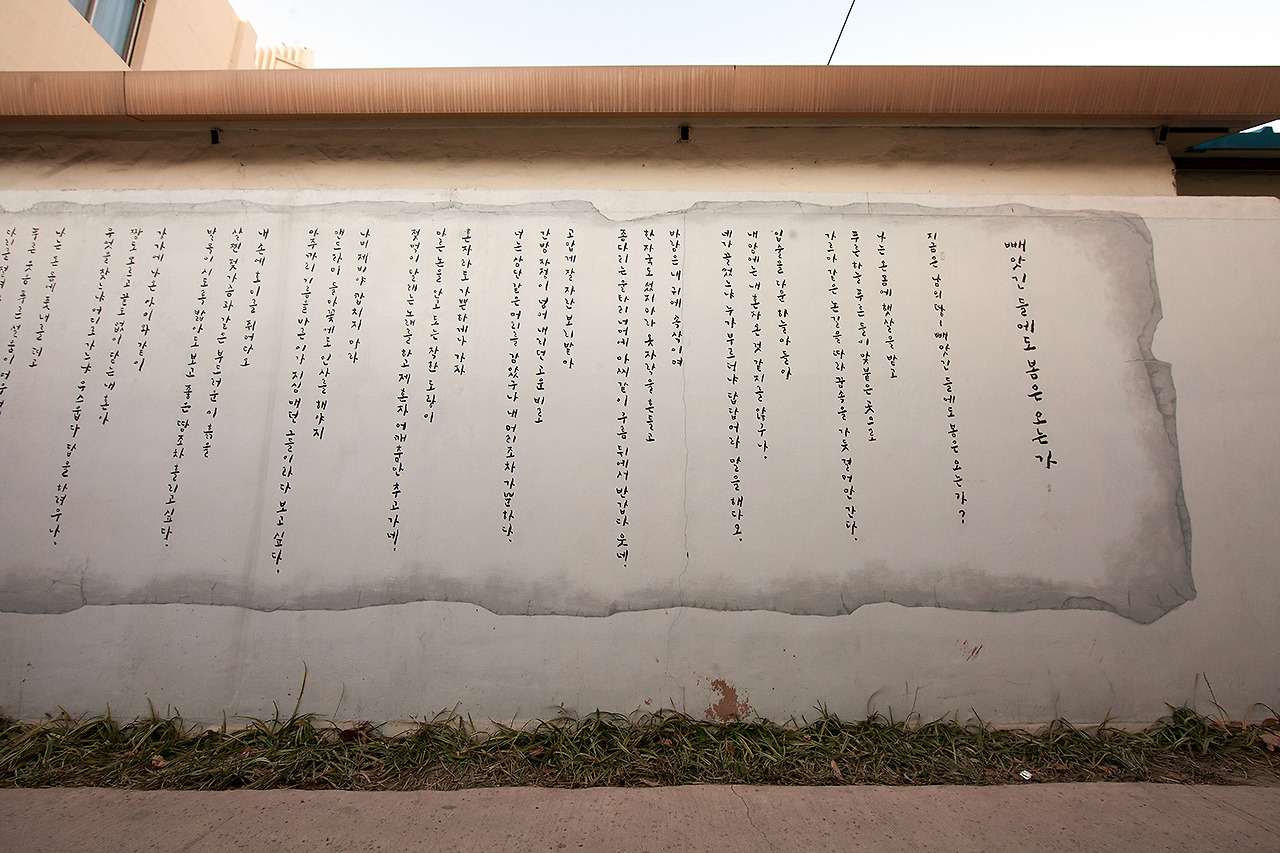 빼앗긴 들에도 봄은 오는가
지금은 남의 땅ㅡ빼앗긴 들에도 봄은 오는가?
나는 온몸에 햇살을 받고
푸른하늘 푸른들이 맞붙은 곳으로
가르마같은 논길을 따라 꿈속을 가듯 걸어만 간다.
입술을 다문 하늘아 들아
내맘에는 내혼자온 것 같지를 않구나.
네가끌었느냐 누가부르더냐 답답어라 말을 해다오.
바람은 내 귀에 속삭이며
한자국도 섰지마라 옷자락을 흔들고
종다리는 울타리 너머에 아씨같이 구름 뒤에서 반갑다 웃네.
고맙게 잘자란 보리밭아
간밤 자정이 넘어 내리던 고운 비로
너는 삼단같은 머리를 감았구나 내 머리조차 가뿐하다.
혼자라도 가쁘하게나 가자
마른논을 안고 도는 착한 도랑이
젖먹이 달래는 노래를 하고 제 혼자 어깨춤만 추고 가네.
나비 제비야 깝치지 마라
맨드라미 들마꽃에도 인사를 해야지
아주까리 기름을 바른 이가 지심 매던 그들이라 다 보고 싶다.
내 손에 호미를 쥐여다오
살찐 젖가슴과 같은 부드러운 이 흙을
발목이 시도록 밟아도 보고 좋은 땀조차 흘리고싶다.
강가에 나온 아이와 같이
짬도 모르고 끝도 없이 닫는 내 혼아
무엇을찾느냐 어디로가느냐 우스웁다 답을 하려무나.
나는 온 몸에 풋내를 띠고
푸른 웃음 푸른 설움이
다리를 절며